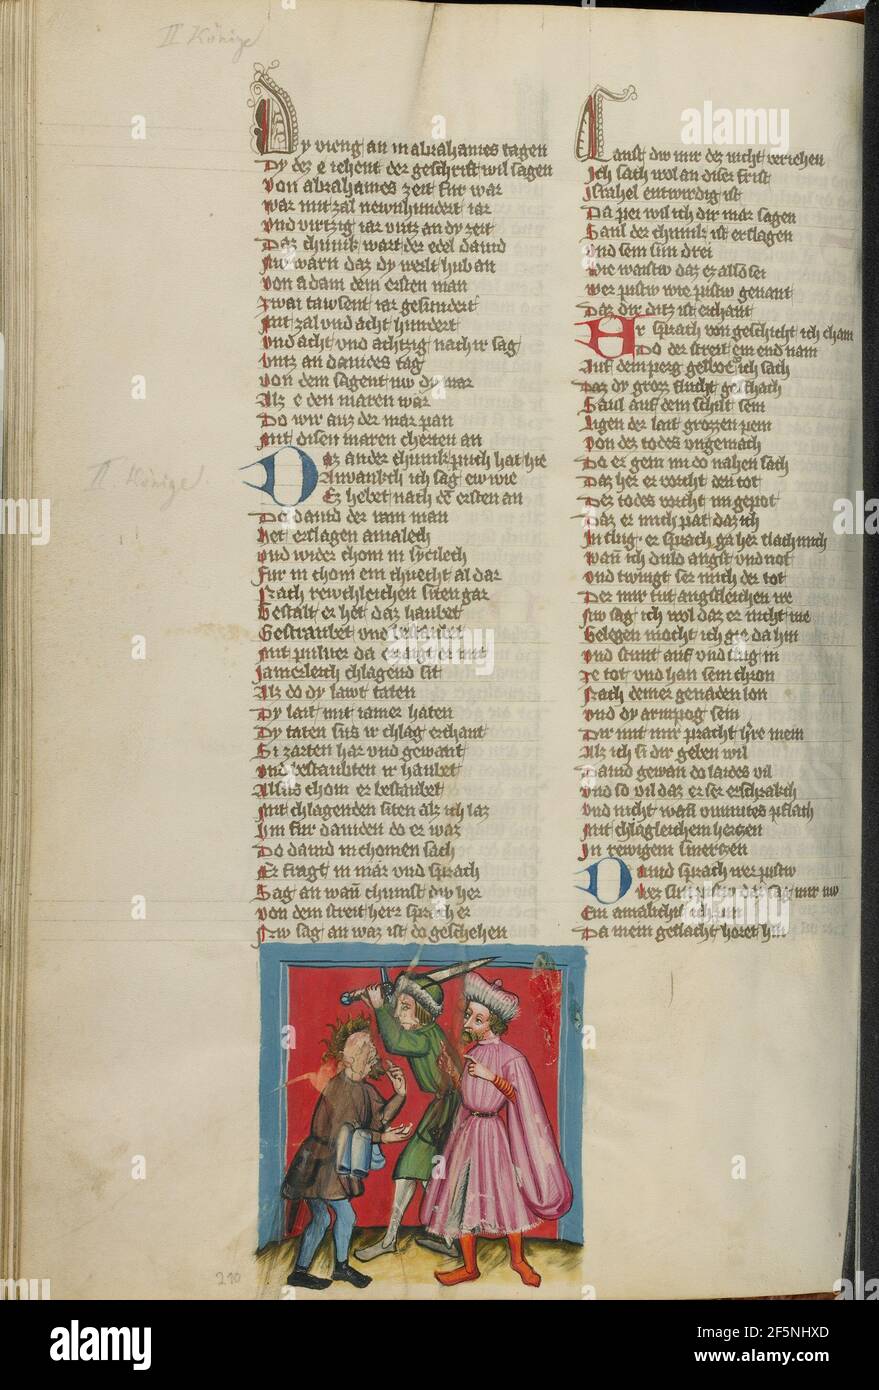 II Könige
Dy vieng an in abrahames tagen
Dy dez e iehent der geschrift wil sagen
Von abrahames zeit fur war
War mit zal newnhundert iar
Und virtzig iar untz an dy zeit
Daz chunik wart der edel david
Nw warn daz dy werlt hub an
Von adam dem ersten man
Zwai tawsent iar gesundert
Mit zal und acht hundert
Und acht und achtzig nach ir sag
Untz an davides tag
Von dem sagent nw dy mar
Alz e den maren war
Do wir auz der mar pan
Mit disen maren cherten an
II. Könige
Daz ander chunik puch hat hie
Anvankch ich sag ew wie
Ez hebet nach dem ersten an
Do david der man
Het erslagen amalech
Und wider chom in sycilech
Fur in chom ein chnecht al dar
Nach rewchleichen siten gar
Gestalt er het daz haubet
Gestraubet und bestaubet
Mit pulver da er mit
Jamerleich chlagend sit
Alz do dy lawt taten
Dy lait mit iamer haten
Dy taten sus ir chlag erchant
Si zarten har und gewant
Und bestaubten ir haubet
Alsus chom er bestaubet
Mit chlagenden siten alz ich laz
Hin fur daviden do er waz
Do david in chomen sach
Er fragt in mar und sprach
Sag an wan chumst dw her
Von dem streit herr sprach er
Nw sag an waz ist do geschehen
Lanst dw mir dez nicht veriehen
Ich sach wol an diser frist
Israhel entwirdig ist
Da pei wil ich dir mar sagen
Saul der chunik ist erslagen
Und sein sun drei
Wie waistw daz ez also sei
Wer pistw wie pistw genant
Daz dir ditz ist erchant
Er sprach von geschicht ich cham
Do der streit ein end nam
Auf dem perg gelboe ich sach
Daz dy grozz flucht geschach
Saul auf dem schilt sein
Ligen der lait grozzen pein
Von dez todes ungemach
Do er gein im do nahen sach
Daz her er vorcht den tot
Der todes vorcht im gepot
Daz er mich pat daz ich
In slug er sprach ga her slach mich
Wan ich duld angst und not
Und twingt ser mich der tot
Der mir tut angstleichen we
Nw sag ich wol daz er nicht me
Gelegen mocht ich gie da hin
Und stunt auf und slug in
Ze tot und han sein chron
Nach deiner genaden lon
Und dy armpog sein
Dir mit mir pracht herre mein
Alz ich si dir geben wil
David gewan do laides vil
Und so vil daz er ser erschrakch
Und nicht wan unmutes pflach
Mit chlagleichem herzen
In rewigem smerzen
David sprach wer pistw
sun pistw daz sag mir nw
Ein amalicht ich pin
Da mein geslacht horet hin
210
alamy
Image ID: 2F5NHXD
www.alamy.com